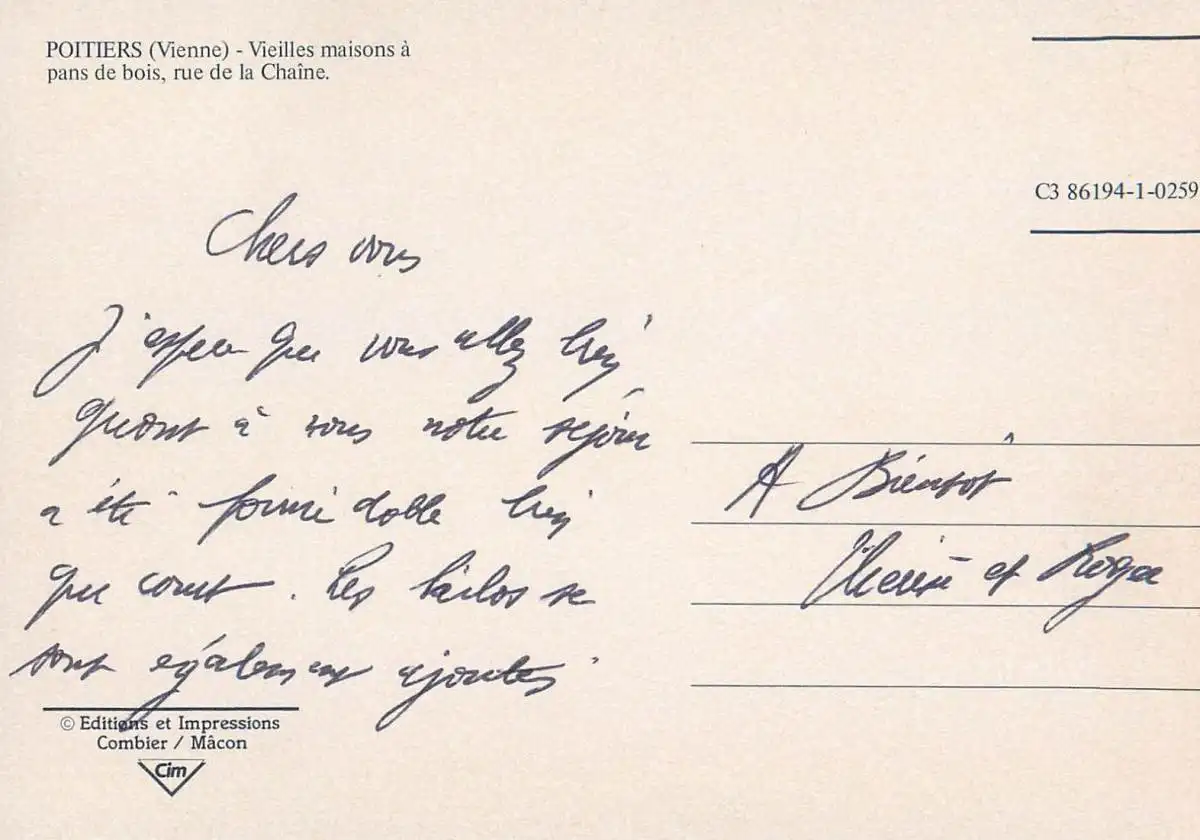 POITIERS (Vienne) - Vieilles maisons à
pans de bois, rue de la Chaîne.
C3 86194-1-0259
Chers vous
J'espère que vous allez bien
Quant à nous notre séjour
a été formidable bien
que court. Les kilos se
sont également ajoutés.
A Bientôt
et Roger
© Editions et Impressions
Combier / Mâcon
Cim